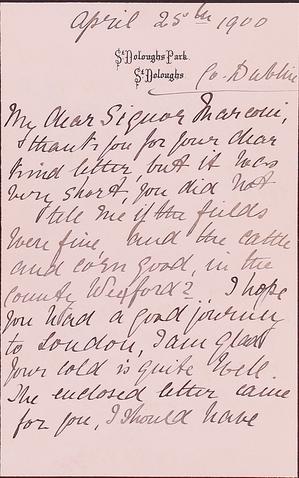 April 25th 1900
St Doloughs Park.
St Doloughs
Co. Dublin
My dear Signor Marconi,
I thank you for your dear
kind letter, but it was
very short, you did not
tell me if the fields
were fine, and the cattle
and corn good, in the
county Wexford? I hope
you had a good journey
to London, I am glad
your cold is quite well.
The enclosed letter came
for you, I should have